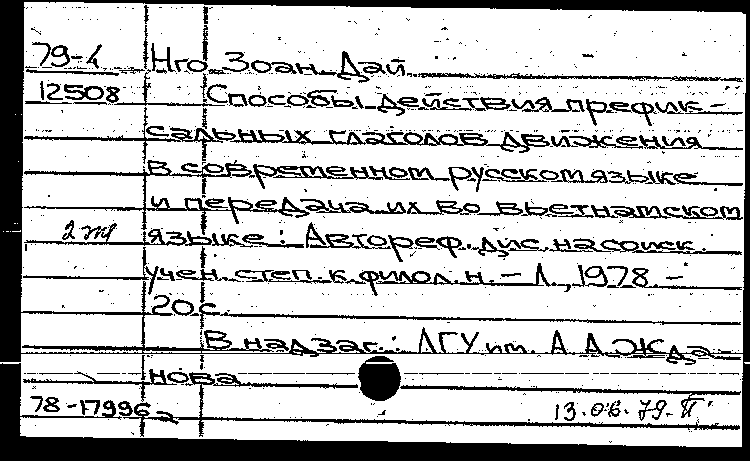 79-4 Нго Зоан Дай
12508 Способы действия префик-
сальных глаголов движения
в современном русском языке
и передача их во вьетнамском
2 языке: Автореф. дис. на соиск.
учен. степ. к. филол. н. - Л., 1978. -
20 с.
В надзаг.: ЛГУ им. А А Жда-
нова
78-17996 13.06.79.